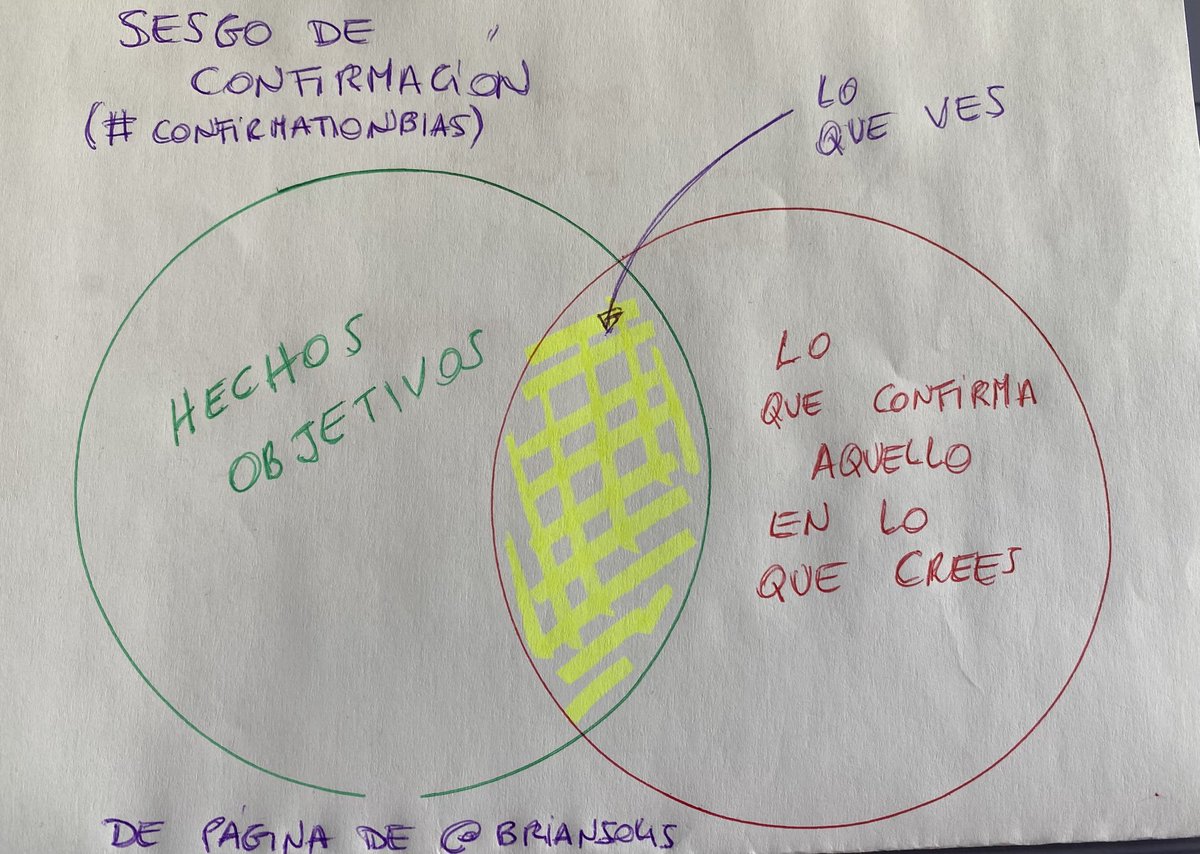 SESGO DE
CONFIRMACIÓN
(# CONFIRMATIONBIAS)
LO
QUE VES
HECHOS
OBJETIVOS
LO
QUE CONFIRMA
AQUELLO
EN LO
QUE CREES
DE PÁGINA DE @BRIANSOLIS